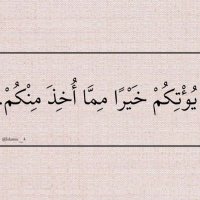 يُؤْتِكُمْ خَيْرًا مِمَّا أُخِذَ مِنْكُمْ.